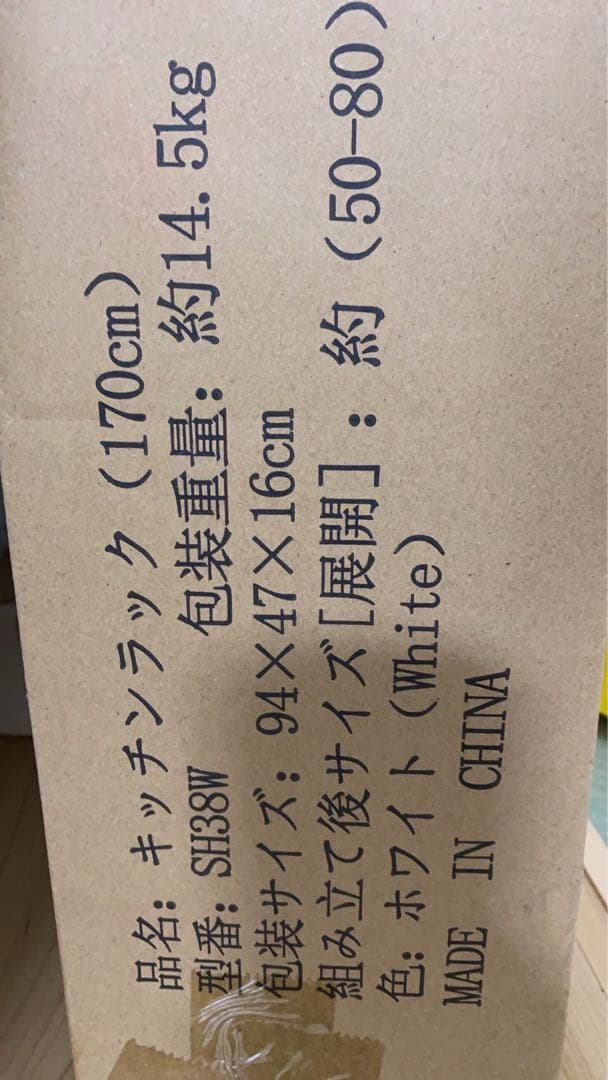 品名: キッチンラック (170cm)
型番: SH38W 包装重量: 約14.5kg
包装サイズ: 94×47×16cm
組み立て後サイズ[展開]: 約 (50-80)
色: ホワイト (White)
MADE IN CHINA